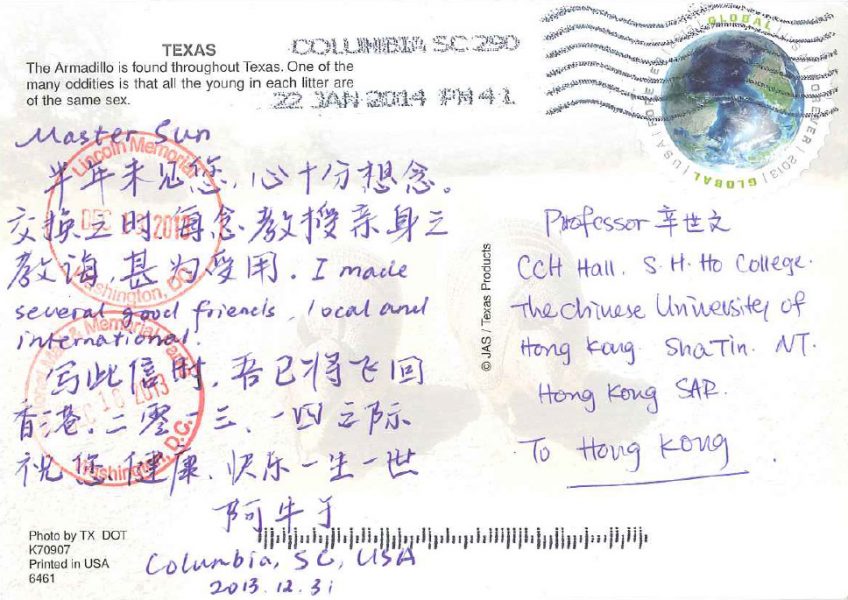 TEXAS
The Armadillo is found throughout Texas. One of the
many oddities is that all the young in each litter are
of the same sex.
COLUMBIA SC 290
22 JAN 2014 PM 4 L
GLOBAL
FOREVER | 2013 | GLOBAL | USA | FOREVER
Master Sun
半年未见您,心十分想念。
交换之时,每念教授亲身之
教诲,甚为受用. I made
several good friends, local and
international.
写此信时,吾已将飞回
香港.二零一三、一四之际
祝您,健康、快乐一生一世
阿牛于
Columbia, SC, USA
2013.12.31
Lincoln Memorial
DEC 2013
Washington, D.C.
10 2013
Washington, D.C.
© JAS / Texas Products
Professor 辛世文
CCH Hall. S. H. Ho College.
The Chinese University of
Hong Kong. ShaTin. NT.
Hong Kong SAR.
To Hong Kong
Photo by TX DOT
K70907
Printed in USA
6461